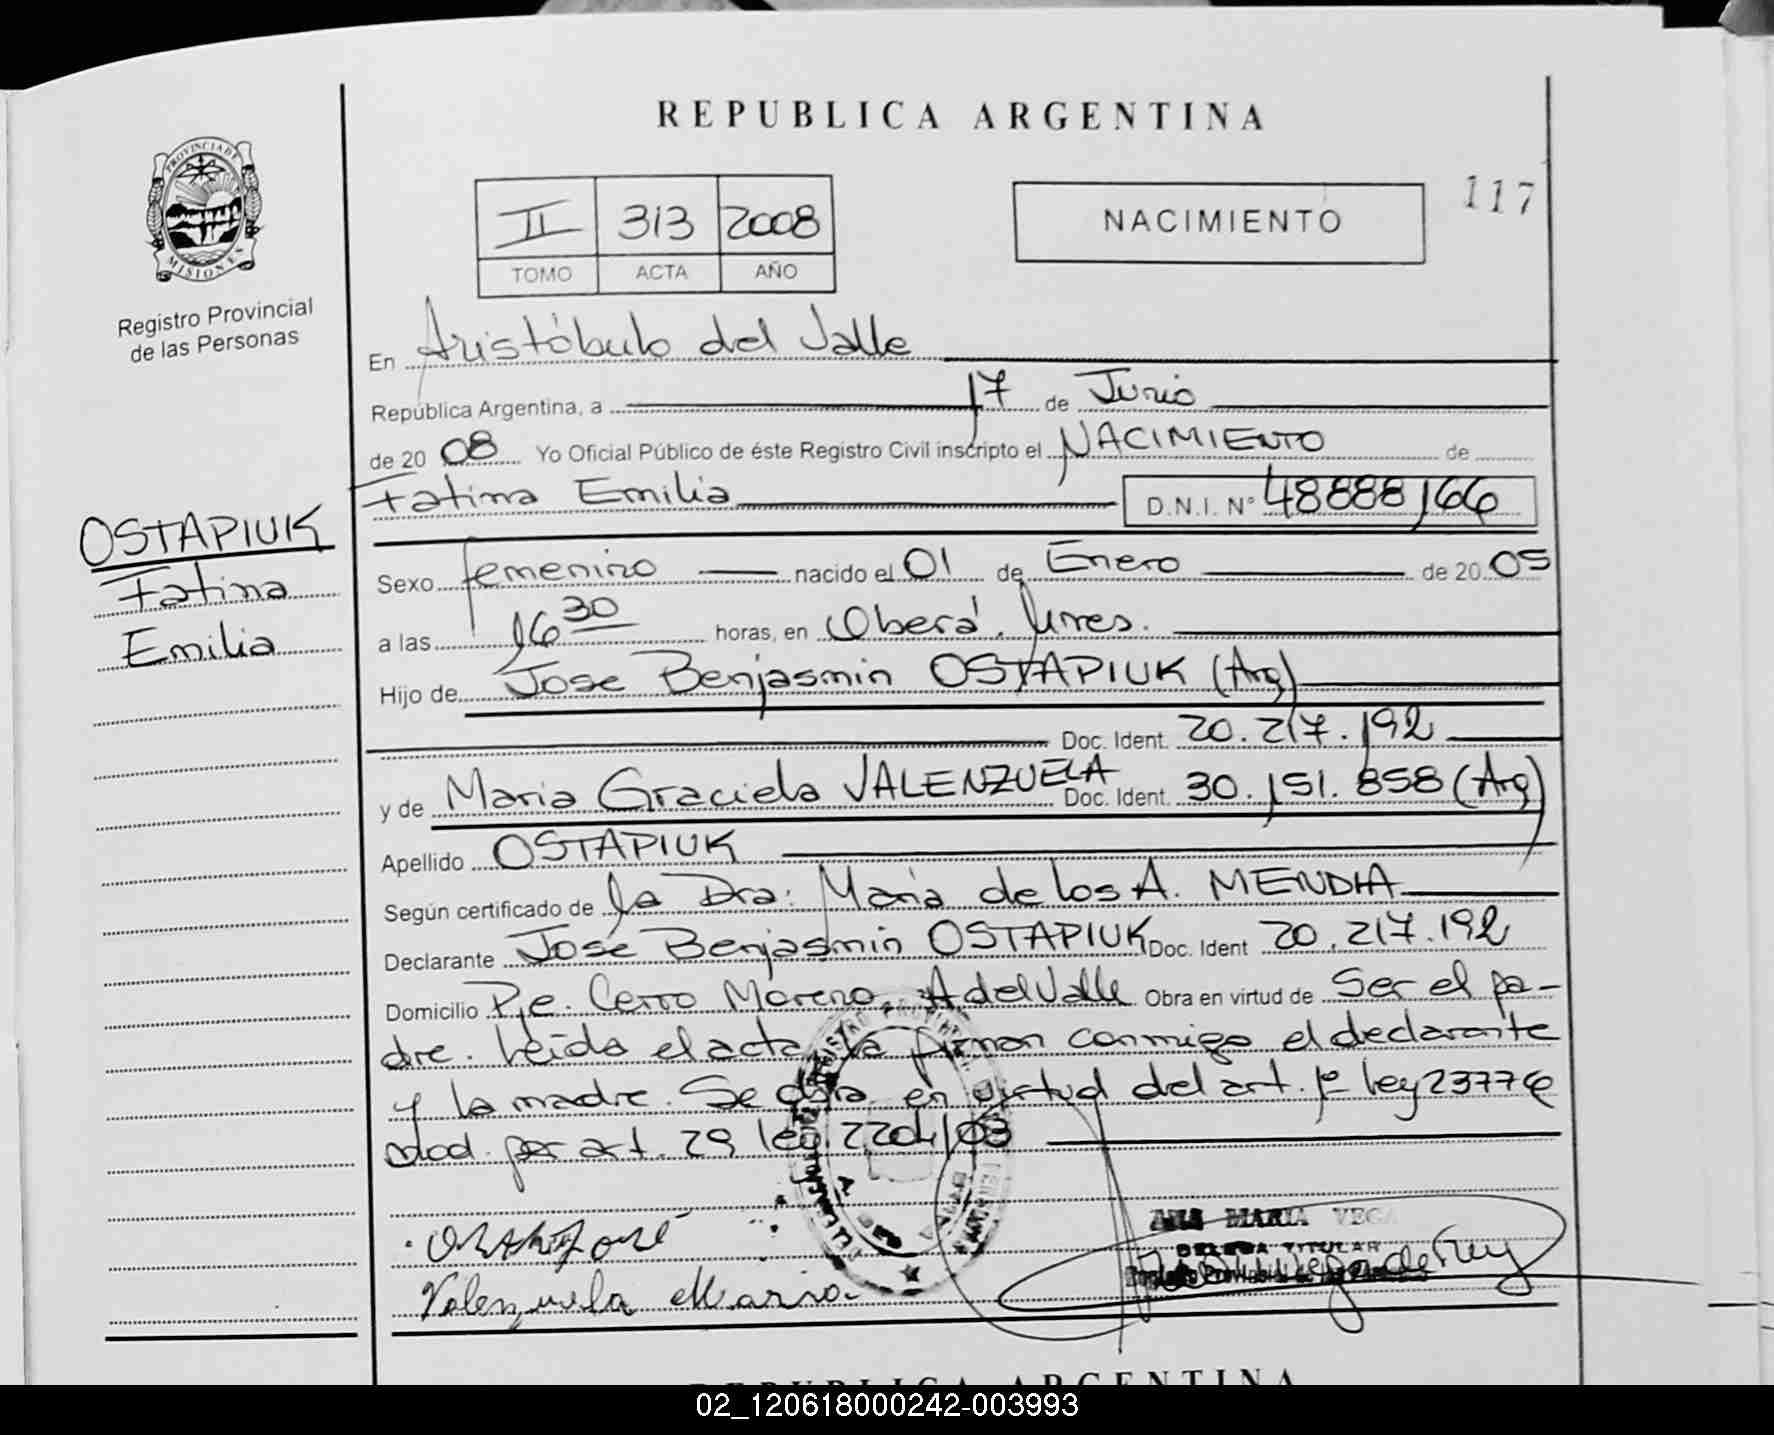 REPUBLICA ARGENTINA
PROVINCIA DE
MISIONES
Registro Provincial
de las Personas
II 313 2008
TOMO ACTA AÑO
NACIMIENTO
117
En Aristóbulo del Valle
República Argentina, a 17 de Junio
de 2008 Yo Oficial Público de éste Registro Civil inscripto el NACIMIENTO de
Fatima Emilia D.N.I. N° 48888166
OSTAPIUK
Fatima
Emilia
Sexo femenino nacido el 01 de Enero de 2005
a las 16 30 horas, en Oberá, Mnes.
Hijo de Jose Benjasmin OSTAPIUK (Arg)
Doc. Ident. 20.217.192
y de Maria Graciela VALENZUELA Doc. Ident. 30.151.858 (Arg)
Apellido OSTAPIUK
Según certificado de la Dra: Maria de los A. MENDIA
Declarante José Benjasmin OSTAPIUK Doc. Ident 20.217.192
Domicilio Pje. Cerro Moreno, A del Valle Obra en virtud de Ser el pa-
dre. Leida el acta la firman conmigo el declarante
y la madre. Se obra en virtud del art. 1º ley 23776
mod. por art. 29 ley 2204/03
José
Valenzuela Maria.
ANA MARIA VEGA
DELEGADA TITULAR
Registro Provincial de las Personas
REPUBLICA ARGENTINA
02_120618000242-003993